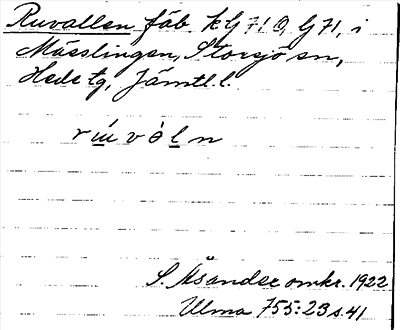 Ruvallen fäb. kG 71 Ö, G 71, i
Mässlingen, Storsjö sn,
Hede tg, Jämtl. l.
S. Åsander omkr. 1922
Ulma 755:23 s. 41